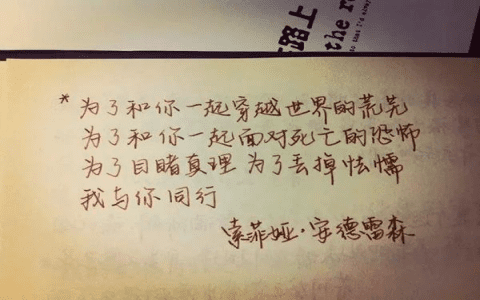 路上
the r
so that I'd alway
* 为了和你一起穿越世界的荒芜
为了和你一起面对死亡的恐怖
为了目睹真理 为了丢掉怯懦
我与你同行
索菲娅·安德雷森